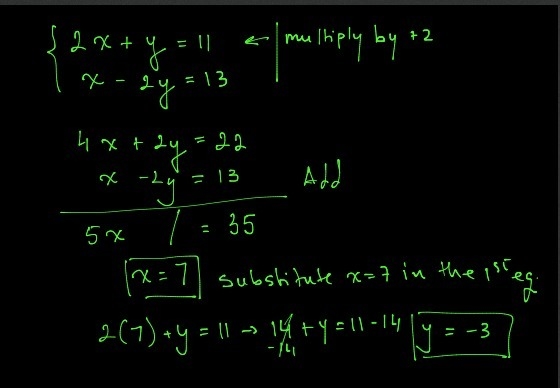 2x + y = 11 ← | multiply by +2
x - 2y = 13
4x + 2y = 22
x - 2y = 13 Add
5x / = 35
x = 7 substitute x=7 in the 1st eq.
2(7) + y = 11 → 14 + y = 11 - 14 y = -3
-14